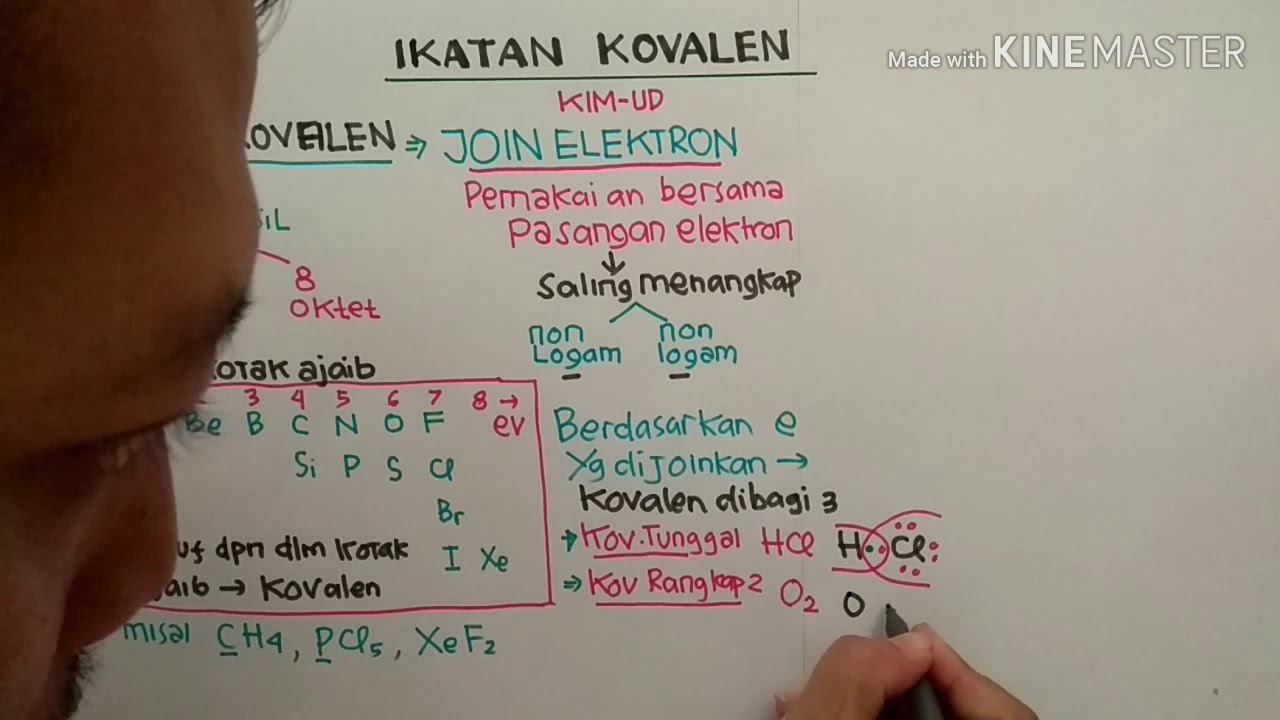 IKATAN KOVALEN
Made with KINEMASTER
KIM-UD
KOVALEN ⇒ JOIN ELEKTRON
Pemakaian bersama
Pasangan elektron
Saling menangkap
non logam
non logam
8
Oktet
ajaib
3 4 5 6 7 8 →
Be B C N O F ev
Si P S Cl
Br
I Xe
dpn dlm kotak
→ Kovalen
misal CH4, PCl5, XeF2
Berdasarkan e
Yg dijoinkan →
Kovalen dibagi 3
→ Kov.Tunggal HCl H Cl
⇒ Kov Rangkap 2 O2 O